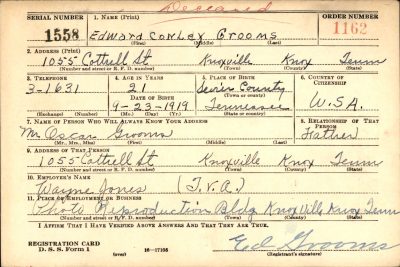 Deceased
SERIAL NUMBER 1. NAME (Print) ORDER NUMBER
1558 Edward Conley Grooms 1162
(First) (Middle) (Last)
2. ADDRESS (Print)
1055 Cottrell St. Knoxville Knox Tenn
(Number and street or R. F. D. number) (Town) (County) (State)
3. TELEPHONE 4. AGE IN YEARS 5. PLACE OF BIRTH 6. COUNTRY OF CITIZENSHIP
3-1631 21 Sevier County
DATE OF BIRTH (Town or county)
9-23-1919 Tennessee U.S.A.
(Exchange) (Number) (Mo.) (Day) (Yr.) (State or country)
7. NAME OF PERSON WHO WILL ALWAYS KNOW YOUR ADDRESS 8. RELATIONSHIP OF THAT PERSON
Mr. Oscar Grooms Father
(Mr., Mrs., Miss) (First) (Middle) (Last)
9. ADDRESS OF THAT PERSON
1055 Cottrell St Knoxville Knox Tenn
(Number and street or R. F. D. number) (Town) (County) (State)
10. EMPLOYER'S NAME
Wayne Jones (T.V.A.)
11. PLACE OF EMPLOYMENT OR BUSINESS
Photo Reproduction Bldg Knoxville Knox Tenn
(Number and street or R. F. D. number) (Town) (County) (State)
I AFFIRM THAT I HAVE VERIFIED ABOVE ANSWERS AND THAT THEY ARE TRUE.
REGISTRATION CARD
D. S. S. Form 1 (over) 16-17105 Ed Grooms
(Registrant's signature)